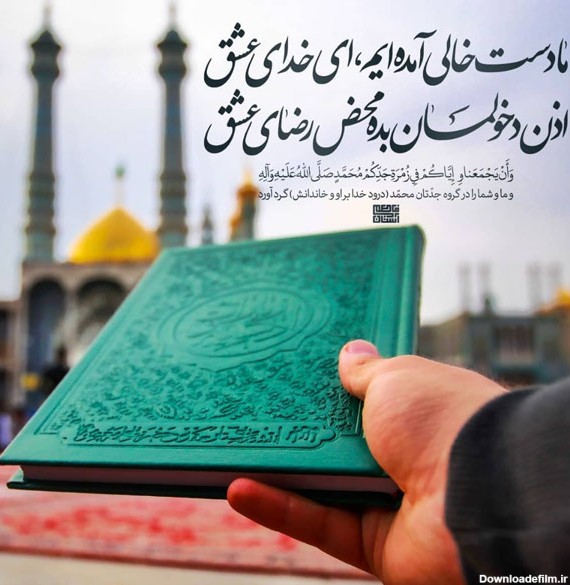 ما دست خالی آمده‌ایم، ای خدای عشق
اذن دخولمان بده محض رضای عشق
وَأَنْ يَجْمَعَنا وَ إِيَّاكُمْ فِي زُمْرَةِ جَدِّكُمْ مُحَمَّدٍ صَلَّى اللهُ عَلَيْهِ وَآلِهِ
و ما و شما را در گروه جدّتان محمّد (درود خدا بر او و خاندانش) گرد آورد
Downloadefilm.ir